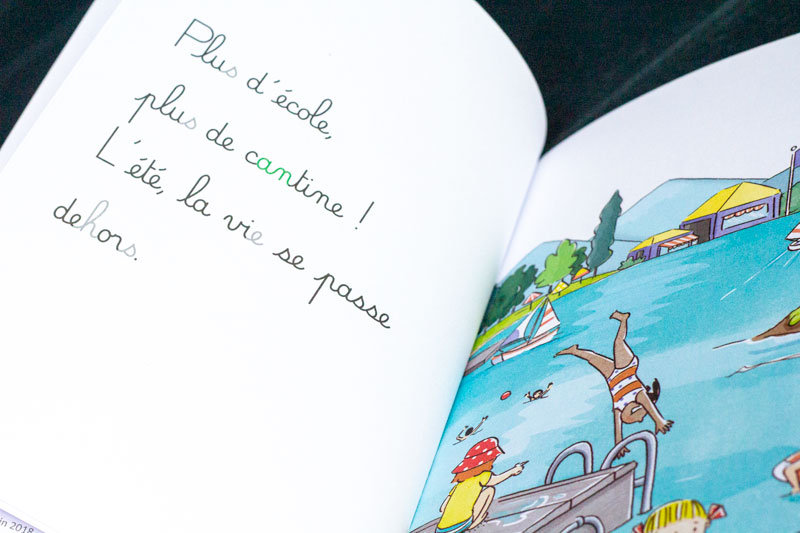 Plus d'école,
plus de cantine !
L'été, la vie se passe
dehors.
in 2018